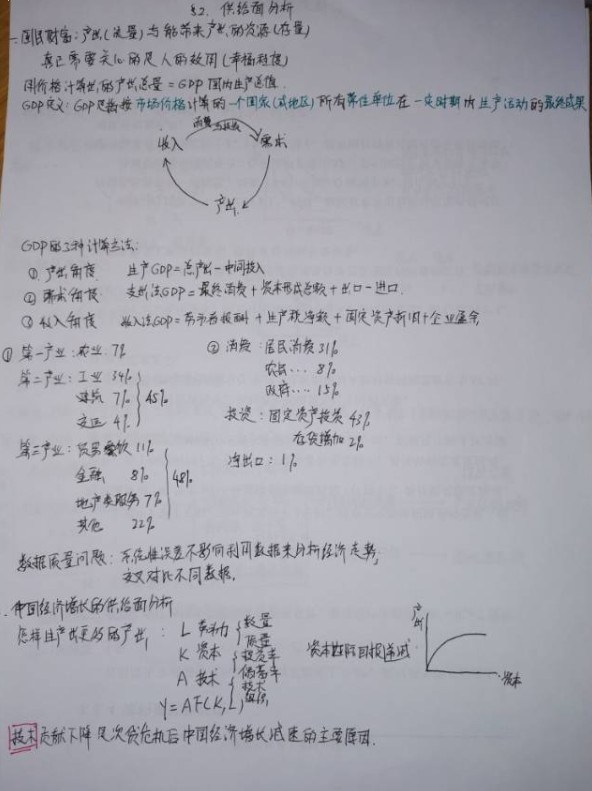 §2. 供给面分析
一.国民财富：产出(流量)与能带来产出的资源(存量)
真正需要关心的是人的效用(幸福程度)
用价格计算出的产出总量=GDP 国内生产总值.
GDP定义：GDP是指按市场价格计算的一个国家(或地区)所有常住单位在一定时期内生产活动的最终成果
消费与投资
收入 需求
产出
GDP的3种计算方法：
① 产出角度 生产GDP=总产出-中间投入
② 需求角度 支出法GDP=最终消费+资本形成总额+出口-进口.
③ 收入角度 收入法GDP=劳动者报酬+生产税净额+固定资产折旧+企业盈余
① 第一产业：农业 7% ② 消费：居民消费31%
第二产业：工业 34% 农民… 8%
建筑 7% 45% 政府… 15%
交运 4% 投资：固定资产投资 43%
存货增加2%
第三产业：贸易餐饮 11% 净出口：1%
金融 8% 48%
地产类服务 7%
其他 22%
数据质量问题：系统性误差不影响利用数据来分析经济走势,
交叉对比不同数据.
中国经济增长的供给面分析
怎样生产出更多的产出：L 劳动力 数量
质量
K 资本 投资率
储蓄率
A 技术 技术
组织
Y=AF(K,L)
资本边际回报递减 产出 资本
技术贡献下降是次贷危机后中国经济增长减速的主要原因.